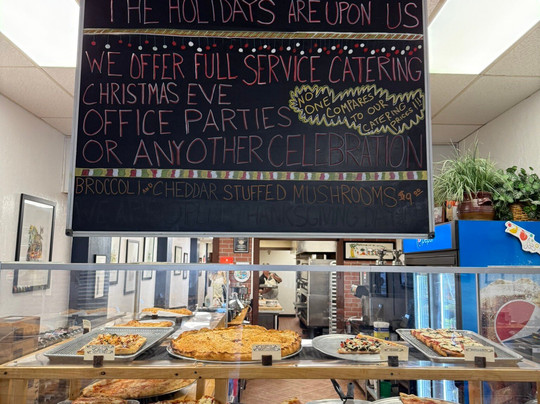 THE HOLIDAYS ARE UPON US
WE OFFER FULL SERVICE CATERING
CHRISTMAS EVE
OFFICE PARTIES
OR ANY OTHER CELEBRATION
NO ONE COMPARES
TO OUR
CATERING
PRICES!!!
BROCCOLI AND CHEDDAR STUFFED MUSHROOMS $9